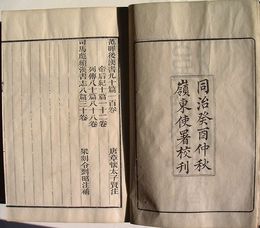 同治癸酉仲秋
嶺東使署校刊
范曄後漢書九十篇一百卷
唐章懷太子賢注
帝后紀十篇一十二卷
列傳八十篇八十八卷
司馬彪續漢書志八篇三十卷
梁剡令劉昭注補